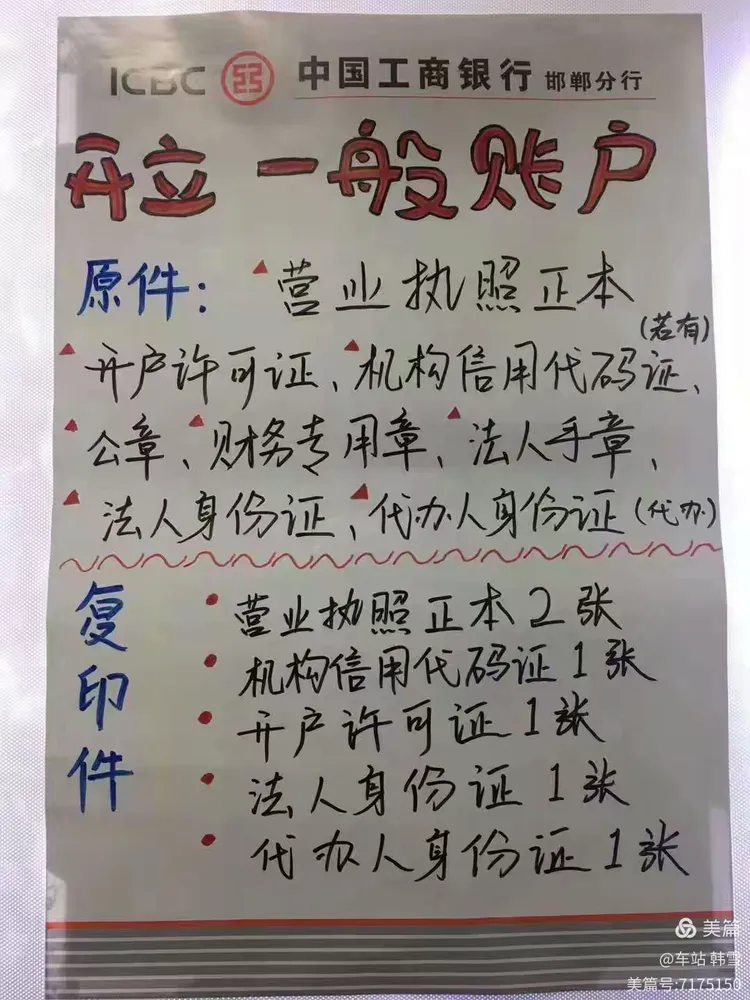 ICBC 中国工商银行 邯郸分行
开立一般账户
原件：营业执照正本
(若有)
开户许可证、机构信用代码证、
公章、财务专用章、法人手章、
法人身份证、代办人身份证(代办)
复印件
营业执照正本2张
机构信用代码证1张
开户许可证1张
法人身份证1张
代办人身份证1张
美篇
@车站 韩雪
美篇号:7175150